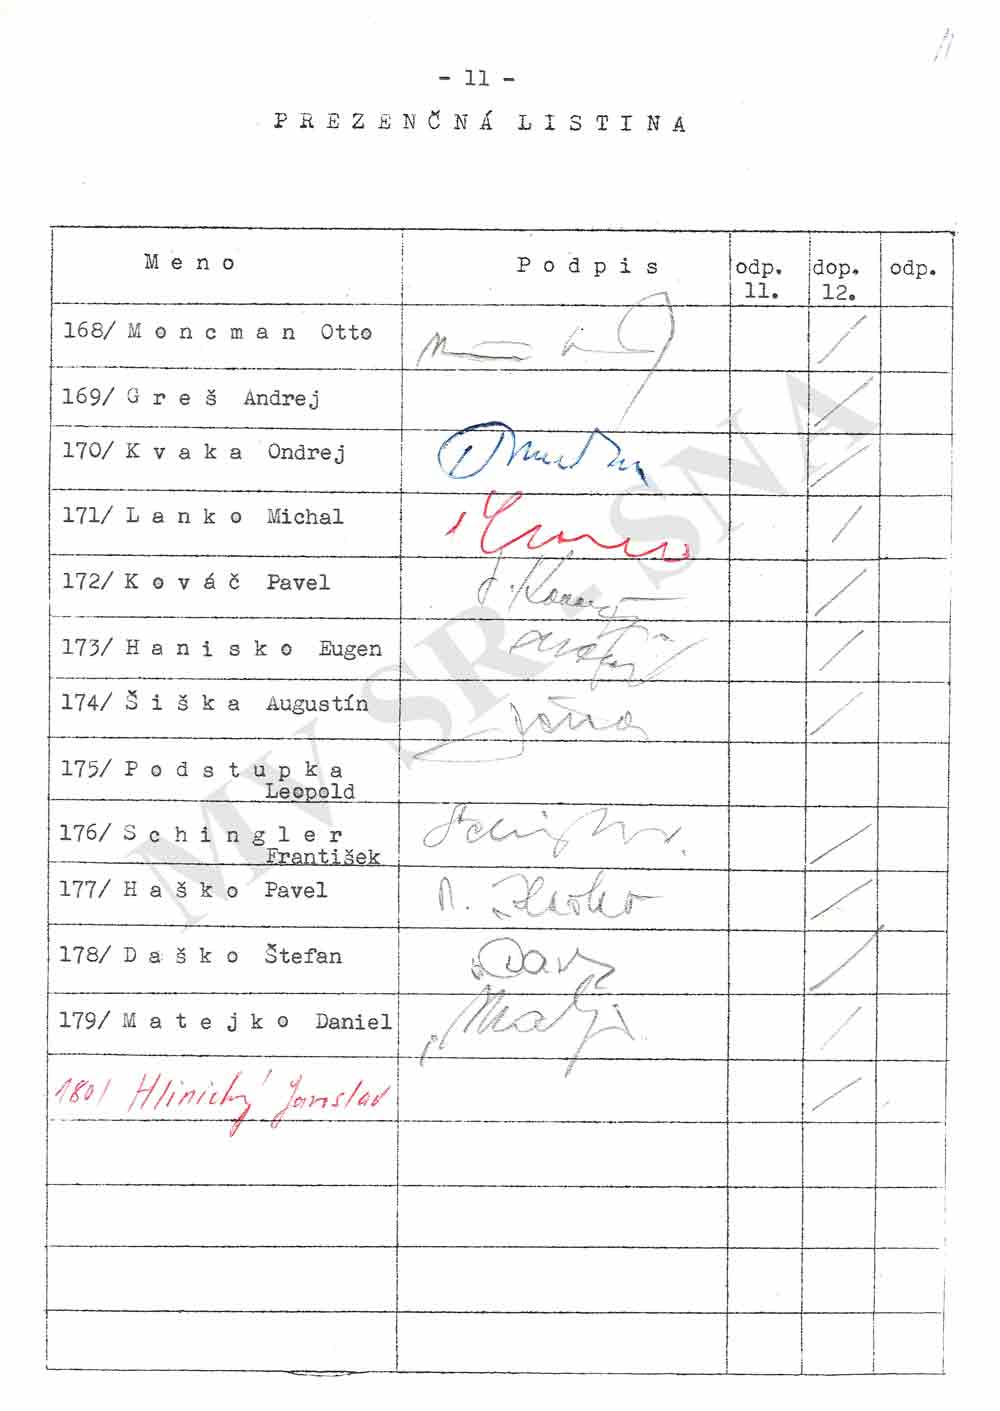 11
- 11 -
PREZENČNÁ LISTINA
Meno Podpis odp. 11. dop. 12. odp.
168/ Moncman Otto
169/ Greš Andrej
170/ Kvaka Ondrej
171/ Lanko Michal
172/ Kováč Pavel
173/ Hanisko Eugen
174/ Šiška Augustín
175/ Podstupka
Leopold
176/ Schingler
František
177/ Haško Pavel
178/ Daško Štefan
179/ Matejko Daniel
180/ Hlinický Jaroslav
MV SR - SNA